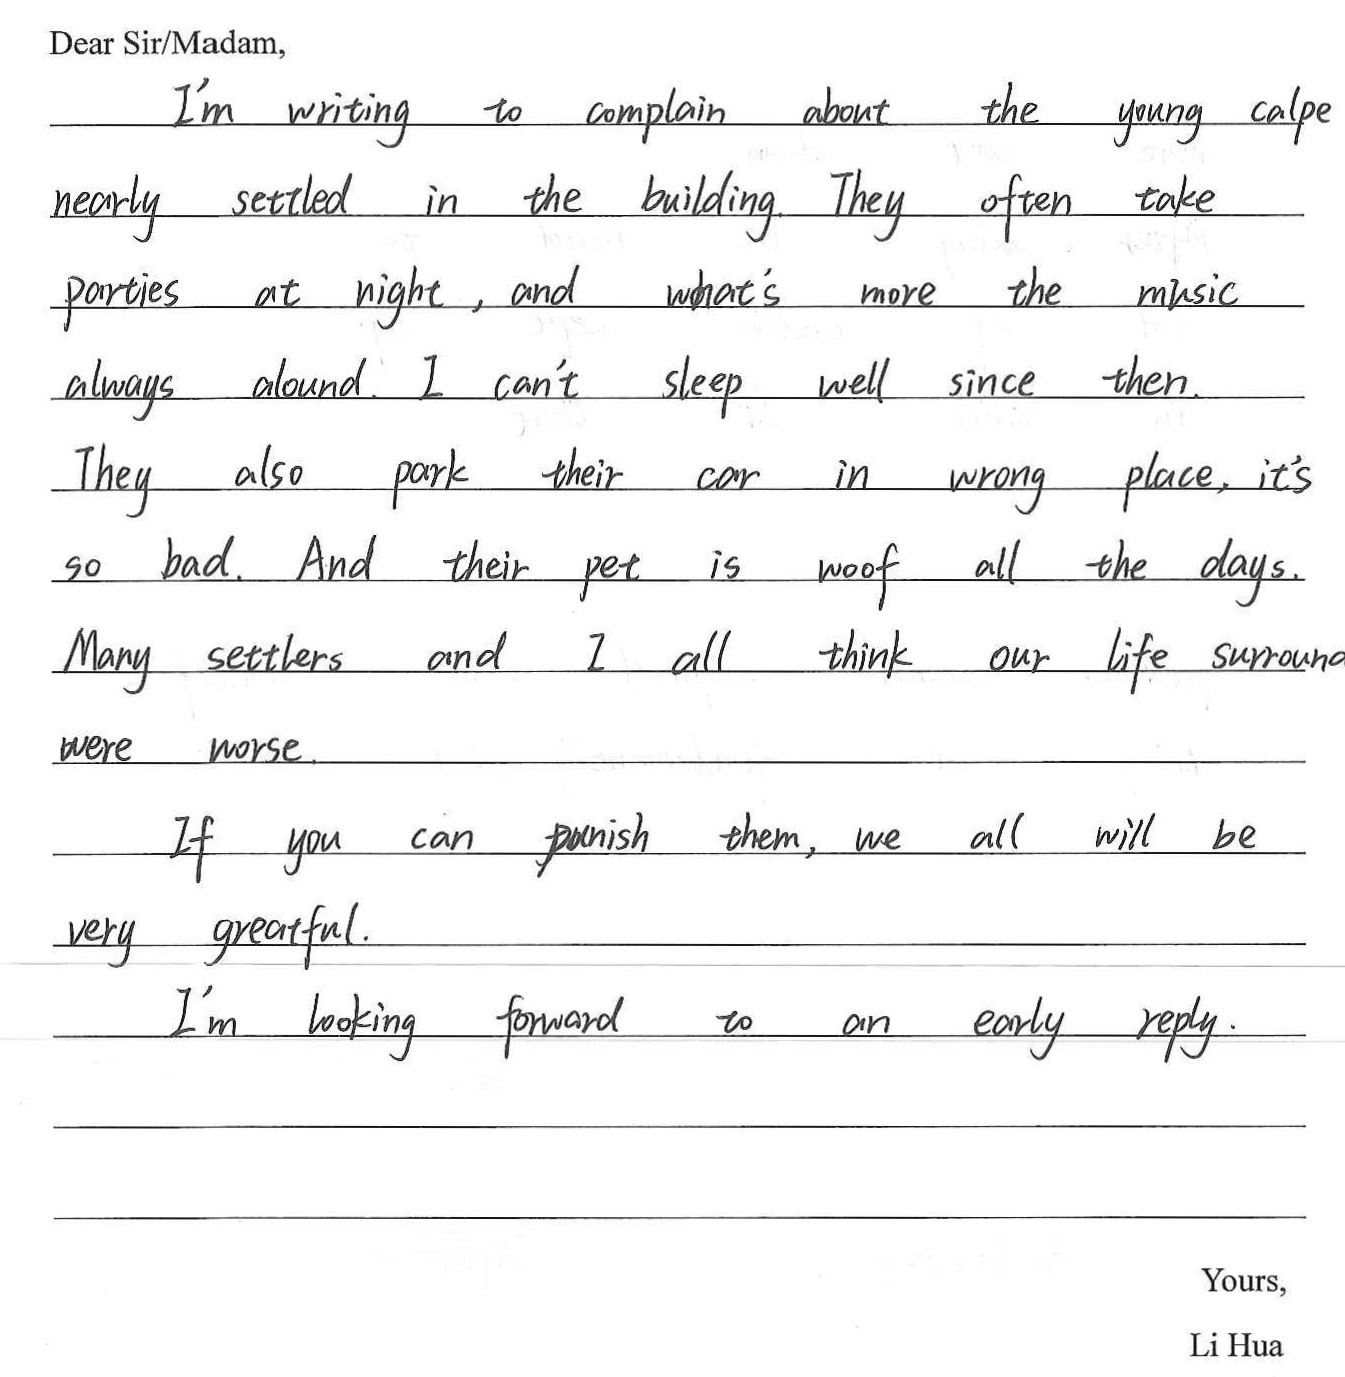 Dear Sir/Madam,
I'm writing to complain about the young calpe
nearly settled in the building. They often take
parties at night, and what's more the music
always alound. I can't sleep well since then.
They also park their car in wrong place, it's
so bad. And their pet is woof all the days.
Many settlers and I all think our life surround
were worse.
If you can punish them, we all will be
very greatful.
I'm looking forward to an early reply.
Yours,
Li Hua